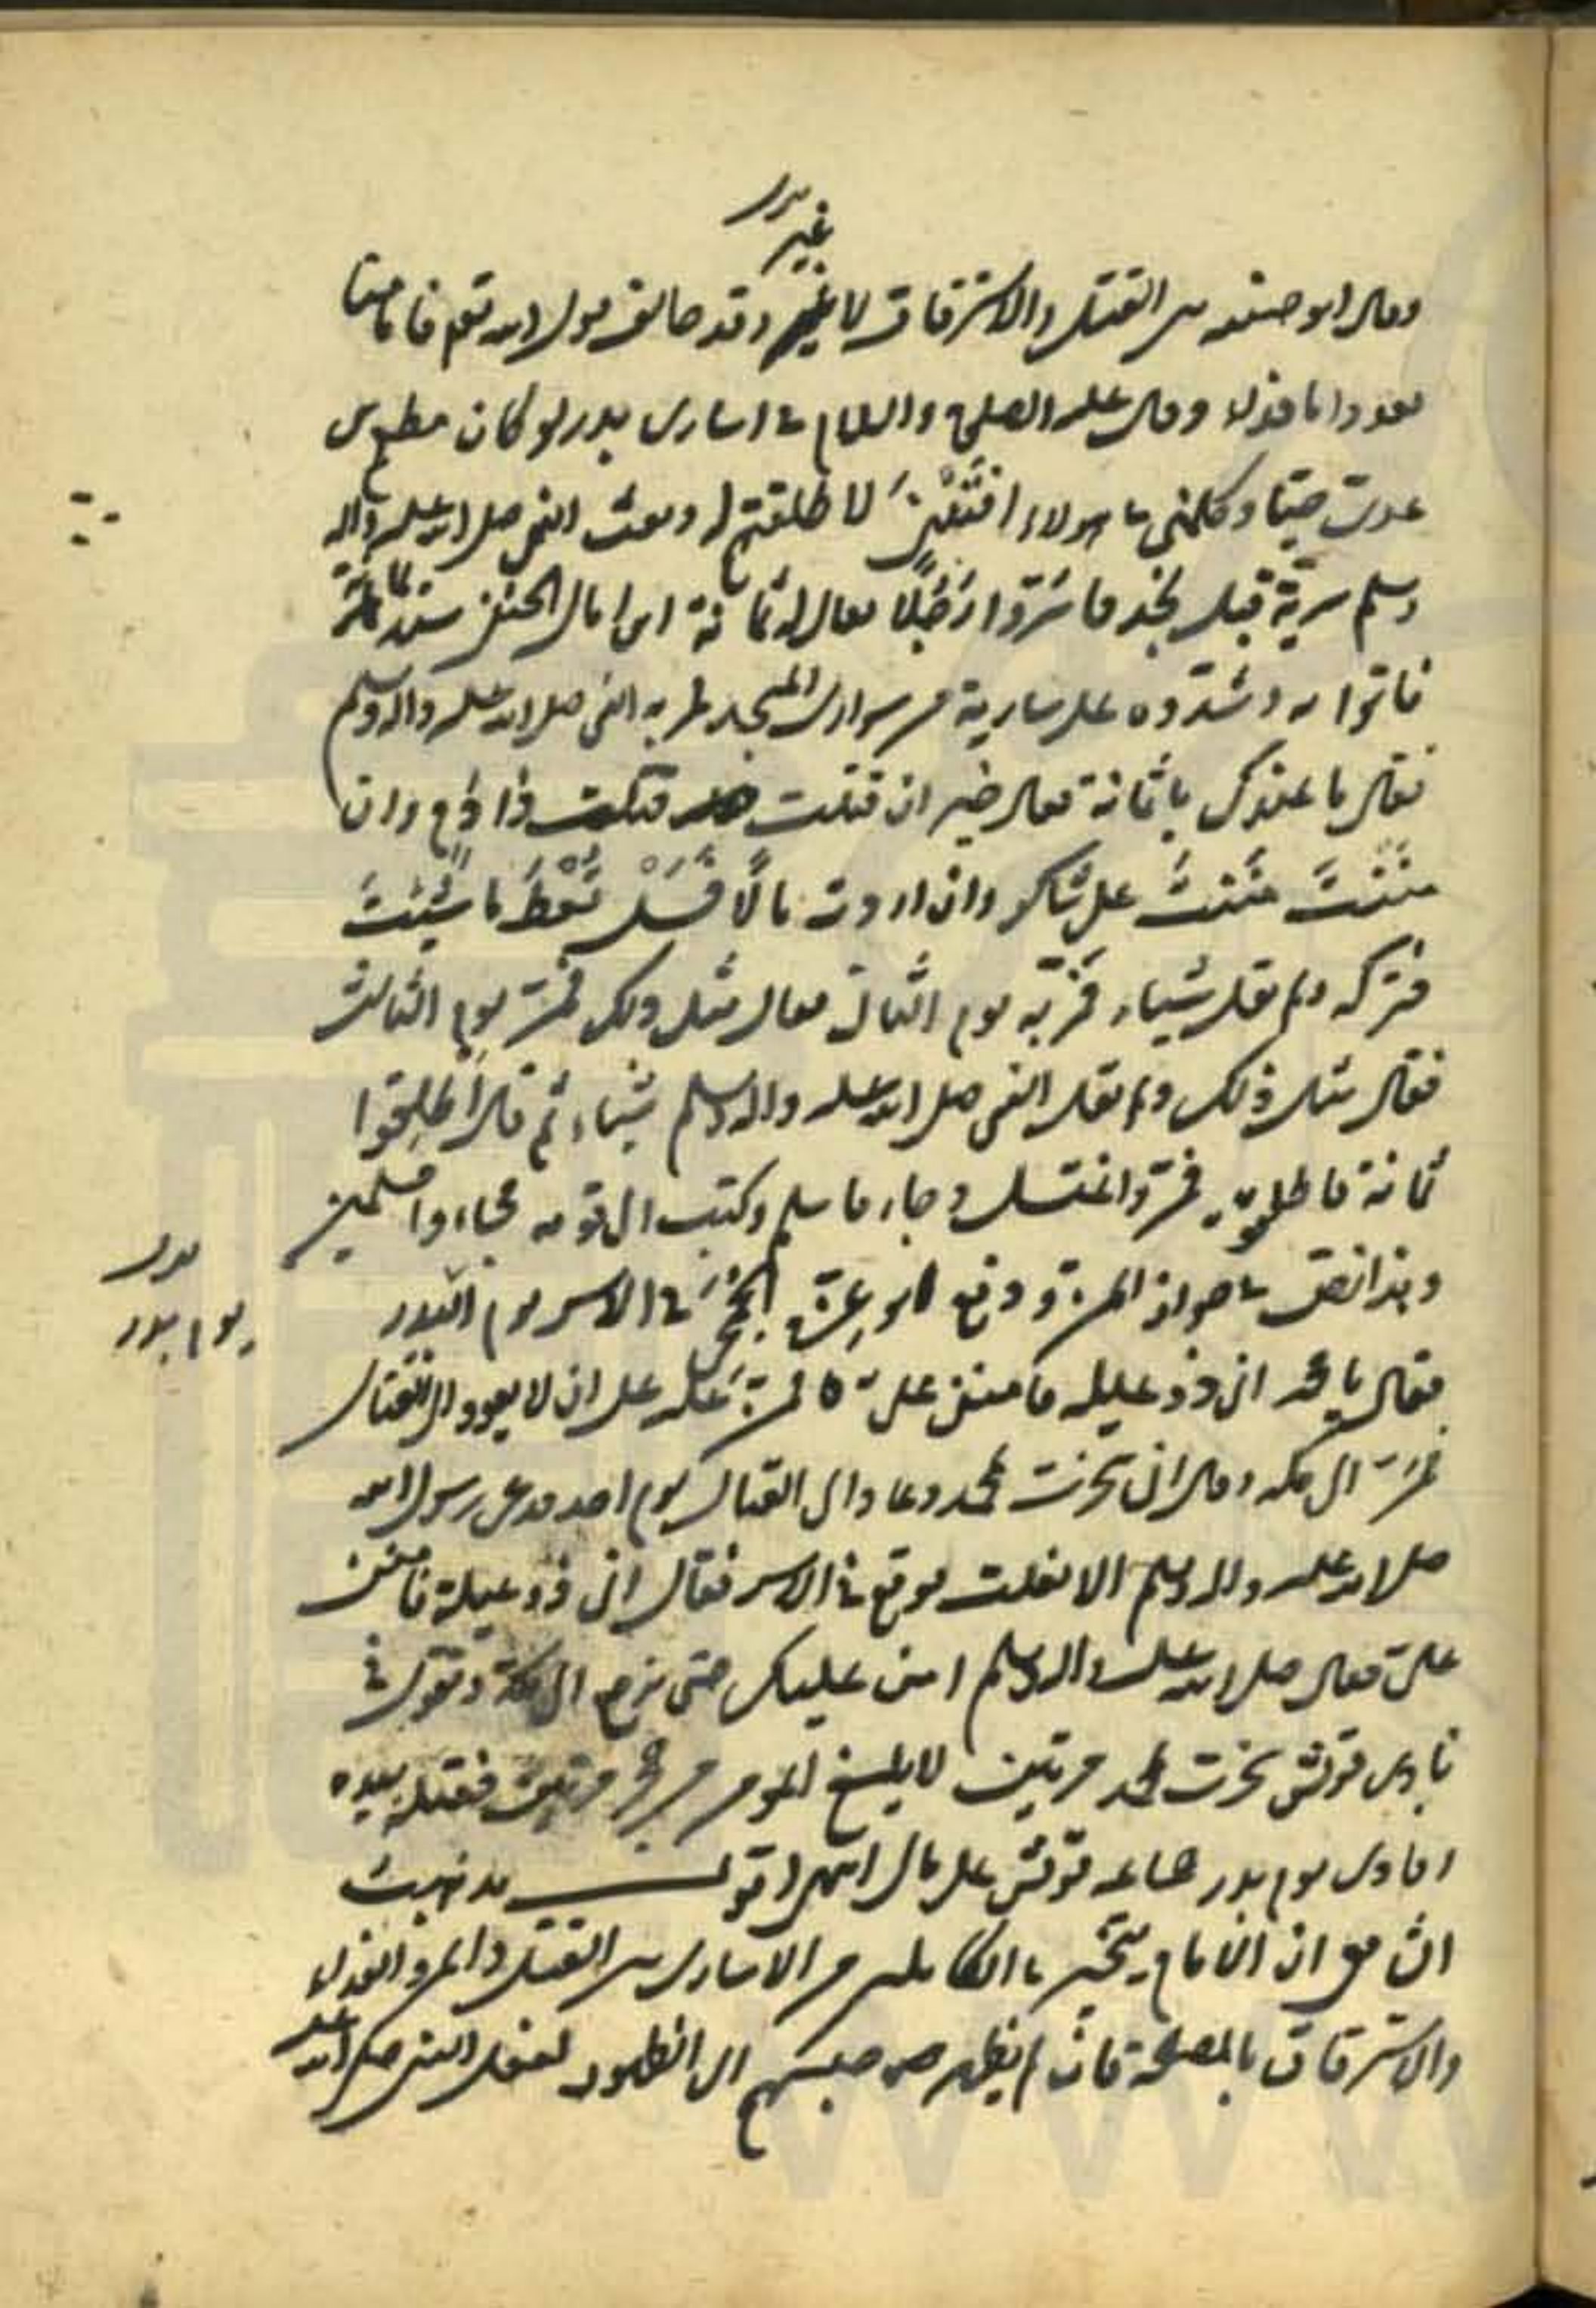 بدل
غير
وقال ابو حنيفه بين القتل والاسترقاق لا غير وقد خالف قول الله تعالى فاما منا
بعد واما فداء وقال عليه الصلوة والسلام في اسارى بدر لو كان مطعم بن
عدى حيا وكلمنى في هولاء النتنى لا طلقتهم له وبعث النبي صلى الله عليه واله
وسلم سرية قبل نجد فاسروا رجلا يقال له ثمامة ابن اثال الحنفى سيد يمامة
فاتوا به وشدوه على سارية من سوارى المسجد فمر به النبي صلى الله عليه واله وسلم
فقال ما عندك يا ثمامة فقال خير ان قتلت قتلت ذا دم وان
مننت مننت على شاكر وان اردت مالا فسل تعط ما شئت
فتركه ولم يقل شيئاء فمر به يوم الثانى فقال مثل ذلك فمر يوم الثالث
فقال مثل ذلك ولم يقل النبي صلى الله عليه واله وسلم شيئاء ثم قال اطلقوا
ثمامة فاطلقوه فمر واغتسل وجاء فاسلم وكتب الى قومه فجاءوا مسلمين
وهذا نص في جواز المن ووقع ابو عزة الجمحى في الاسر يوم البدر
بدل
يوم بدر
فقال يا محمد انى ذو عيله فامنن على فمن عليه على ان لا يعود الى القتال
فمر الى مكه وقال انى سخرت بمحمد وعاد الى القتال يوم احد فدعى رسول الله
صلى الله عليه واله وسلم الا يفلت فوقع في الاسر فقال انى ذو عيلة فامنن
على فقال صلى الله عليه واله وسلم امن عليك حتى ترجع الى مكة وتقول في
نادى قريش سخرت بمحمد مرتين لا يلسع المؤمن من جحر مرتين فقتله بيده
افادى يوم بدر جماعه قريش على مال اقول قد ثبت
ان الامام يتخير في الكاملين من الاسارى بين القتل والمن والفداء
والاسترقاق بالمصلحة فان لم يظهر حبسهم الى الظهور لفعل النبى صلى الله عليه